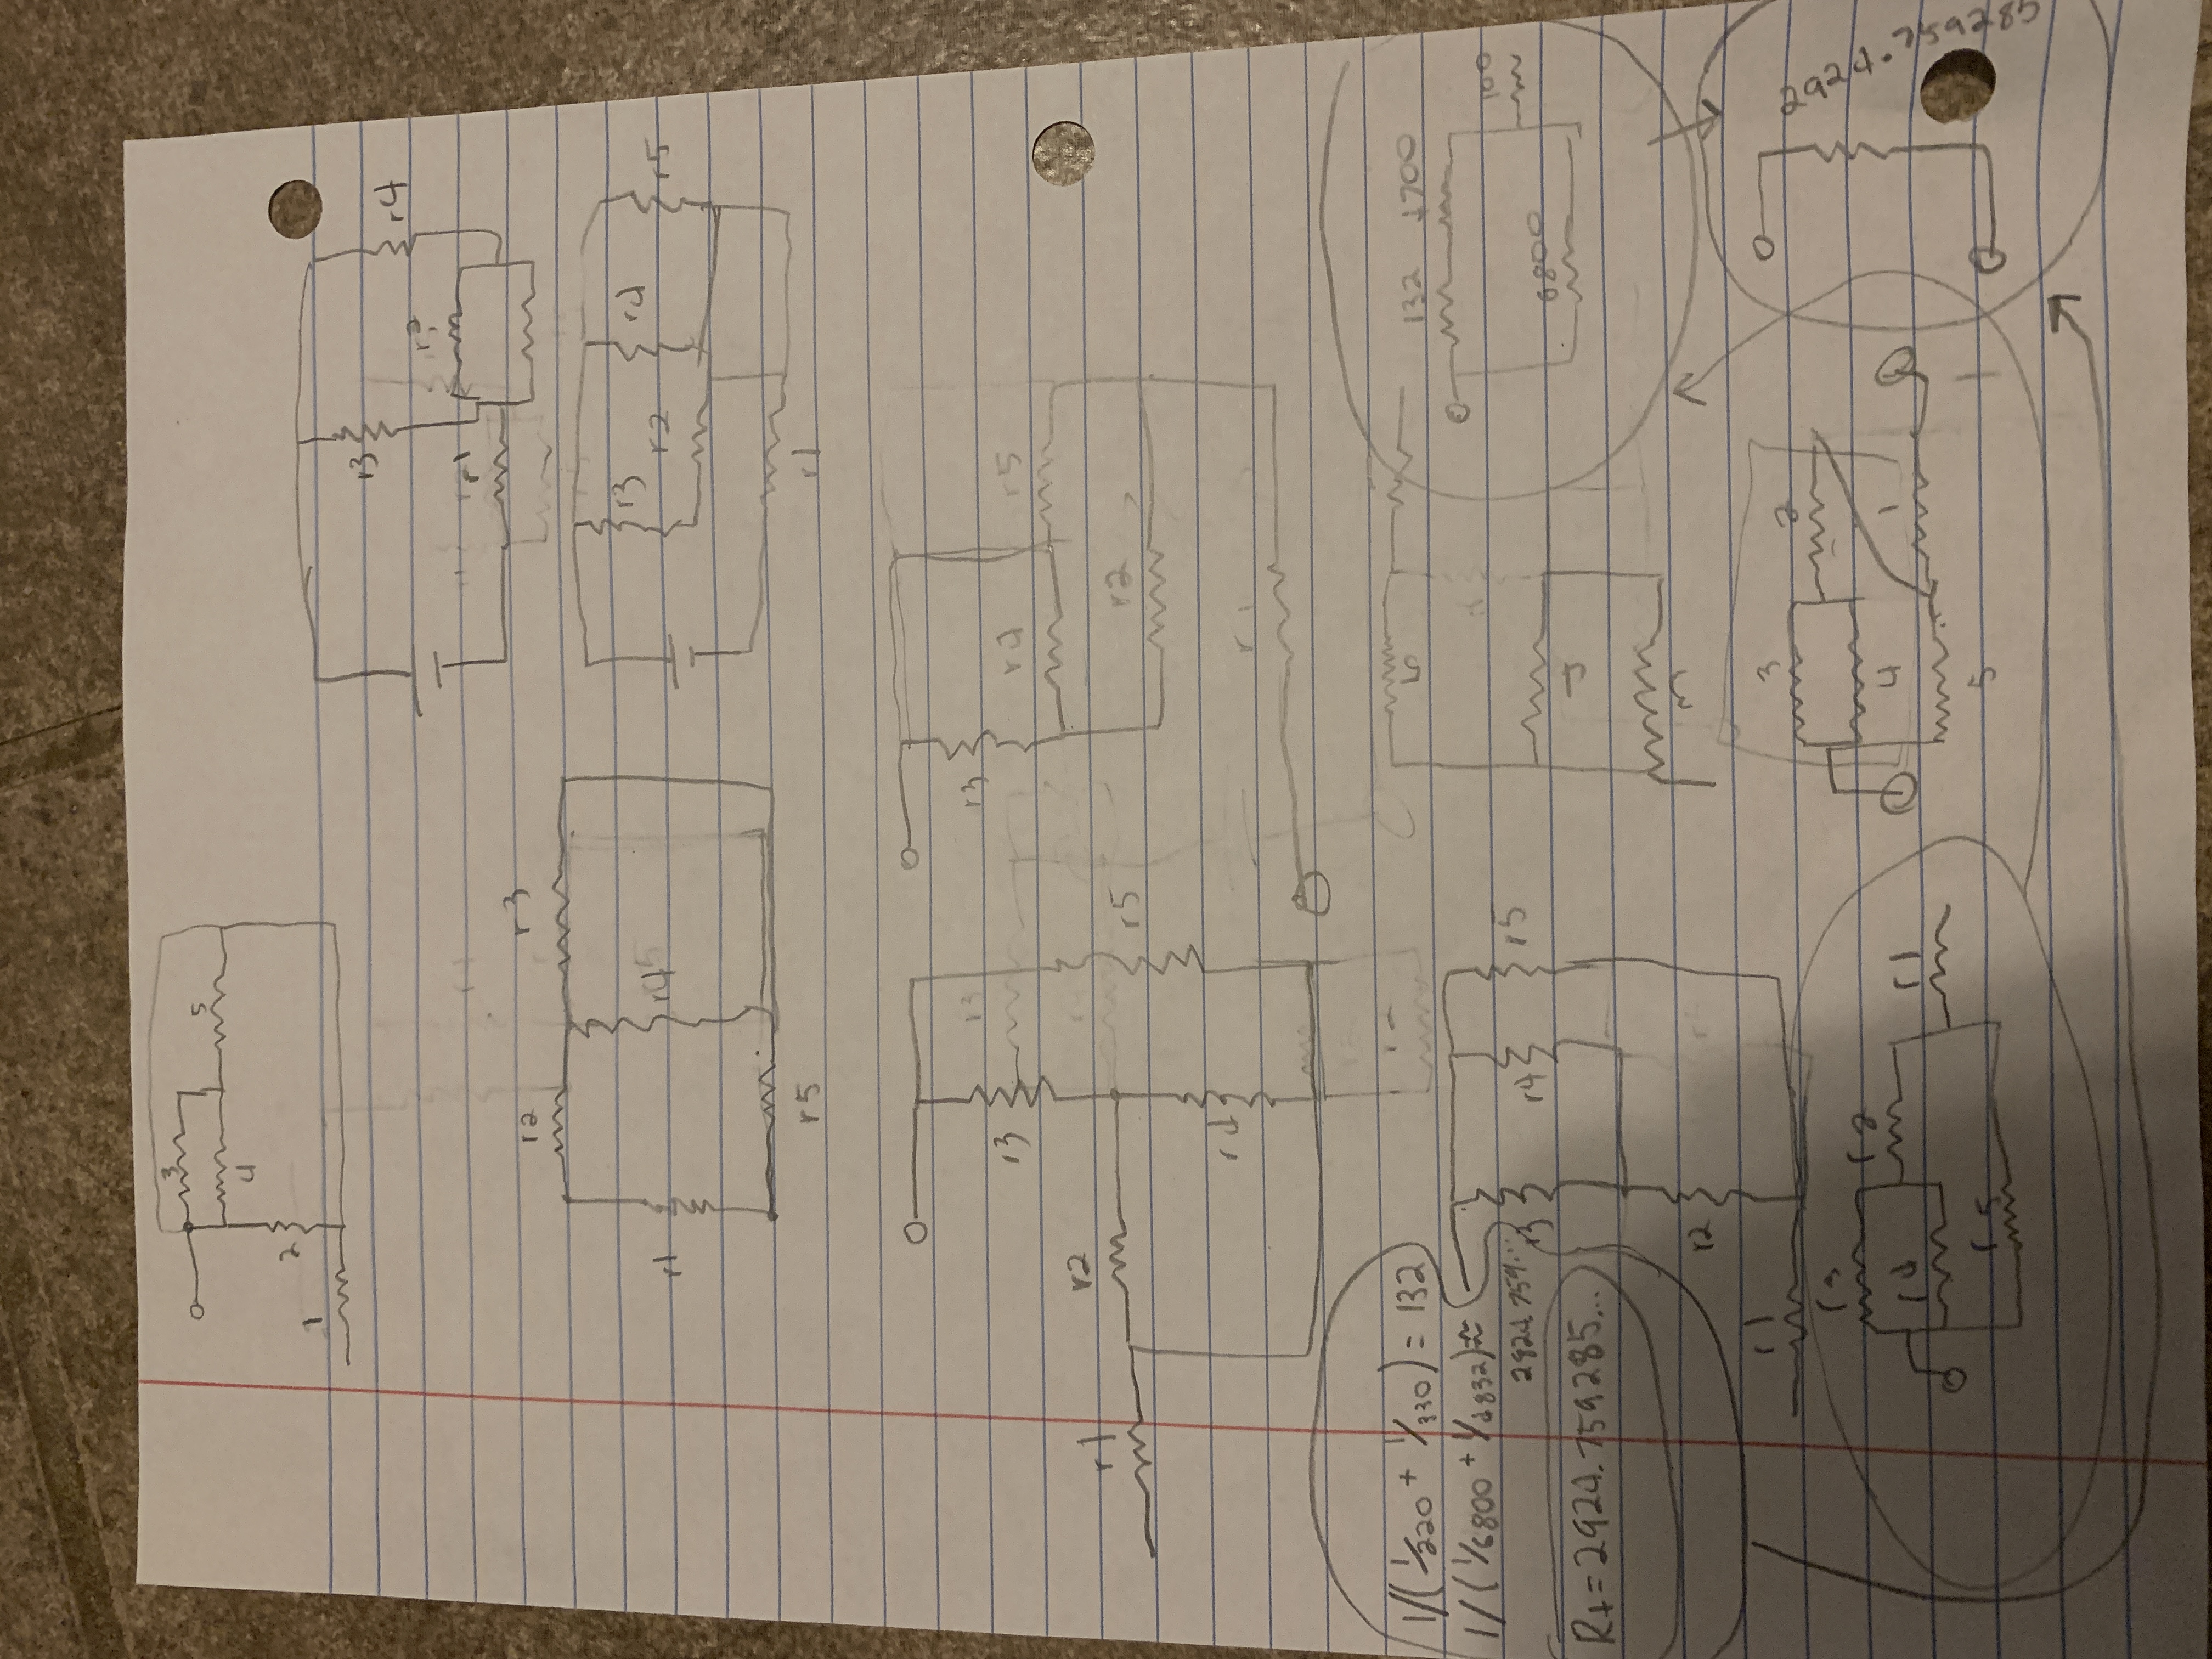 3
5
4
2
1
r3
r4
r1
r2
r3
r1
r4
r5
r3
r4
r2
r5
r1
r3
r3
r5
r2
r1
r5
r4
r3
r4
r5
r2
1/(1/220 + 1/330) = 132
1/(1/6800 + 1/4832)≈
2924.759...
Rt=2924.759285...
r3
r4
r5
r2
r1
5
4
3
132 4700
100
6800
3
2
4
1
5
r3
r2
r4
r1
r5
2924.759285